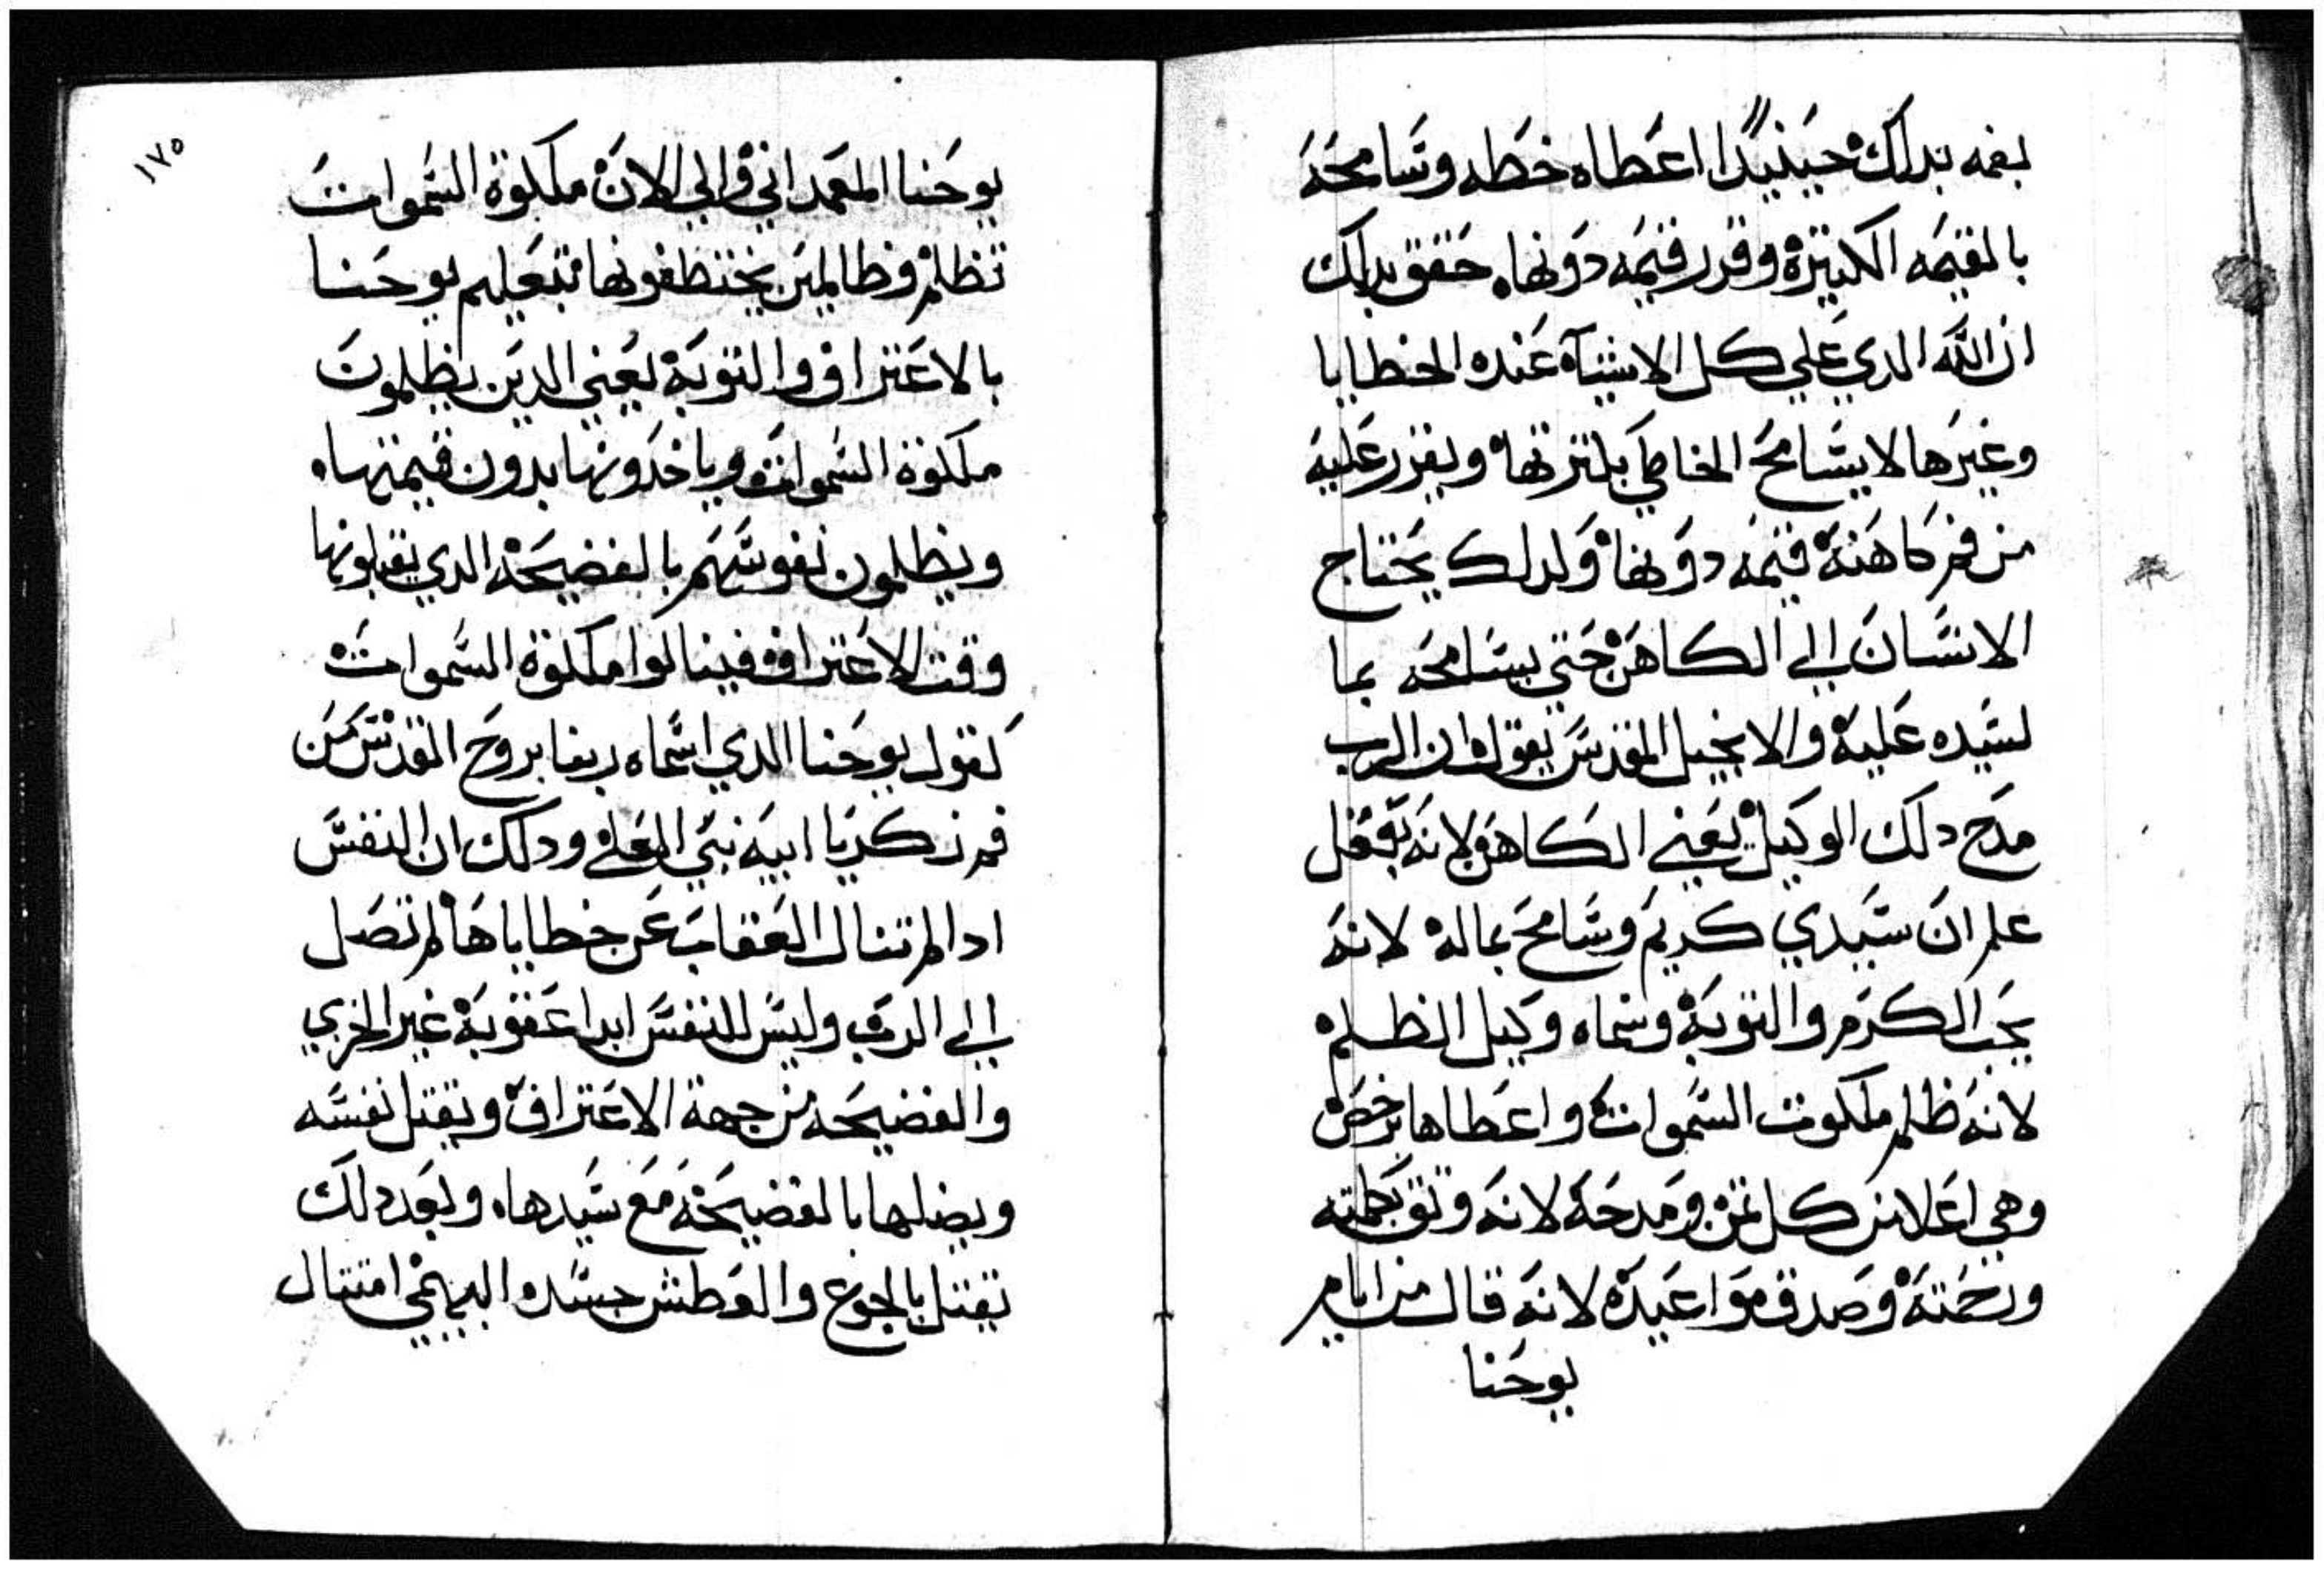 بفمه بدلك حينيدًا اعطاه خطه وسامحه
بالقيمه الكبيرة وقرر قيمه دونها، حقق بدلك
ان الله الدي علي كل الاشيآء عنده الخطايا
وغيرها لا يسامح الخاطي بكترتها ويقرر عليه
من فم كاهنة قيمه دونها ولدلك يحتاج
الانسان الي الكاهن حتي يسامحه بما
لسيده عليه والانجيل المقدس يقول ان الرب
مدح دلك الوكيل يعني الكاهن لانه بعقل
علم ان سيدي كريم وسامح بماله لانه
يحب الكرم والتوبة وسماه وكيل الظلم
لانه ظلم ملكوت السموات واعطاها برخص
وهي اعلا من كل تمن ومدحه لانه وتق بحكمته
ورحمته وصدق مواعيده لانه قال من ايام
يوحنا
١٧٥
يوحنا المعمداني والي الان ملكوة السموات
تظلم وظالمين يختطفونها فبتعليم يوحنا
بالاعتراف والتوبة يعني الدين يظلمون
ملكوة السموات وياخدونها بدون قيمتها،
ويظلمون نفوسهم بالفضيحة الدي يقبلونها
وقت الاعتراف فينالوا ملكوة السموات
كقول يوحنا الدي اسماه ربنا بروح القدس من
فم زكريا ابيه نبي العلي ودلك ان النفس
ادا لم تنال العقاب عن خطاياها لم تصل
الي الرب وليس للنفس ابدا عقوبة غير الخزي
والفضيحه من جهة الاعتراف ويقتل نفسه
ويضلها بالفضيحة مع سيدها، وبعد دلك
يقتل بالجوع والعطش جسده البهيمي امتتال